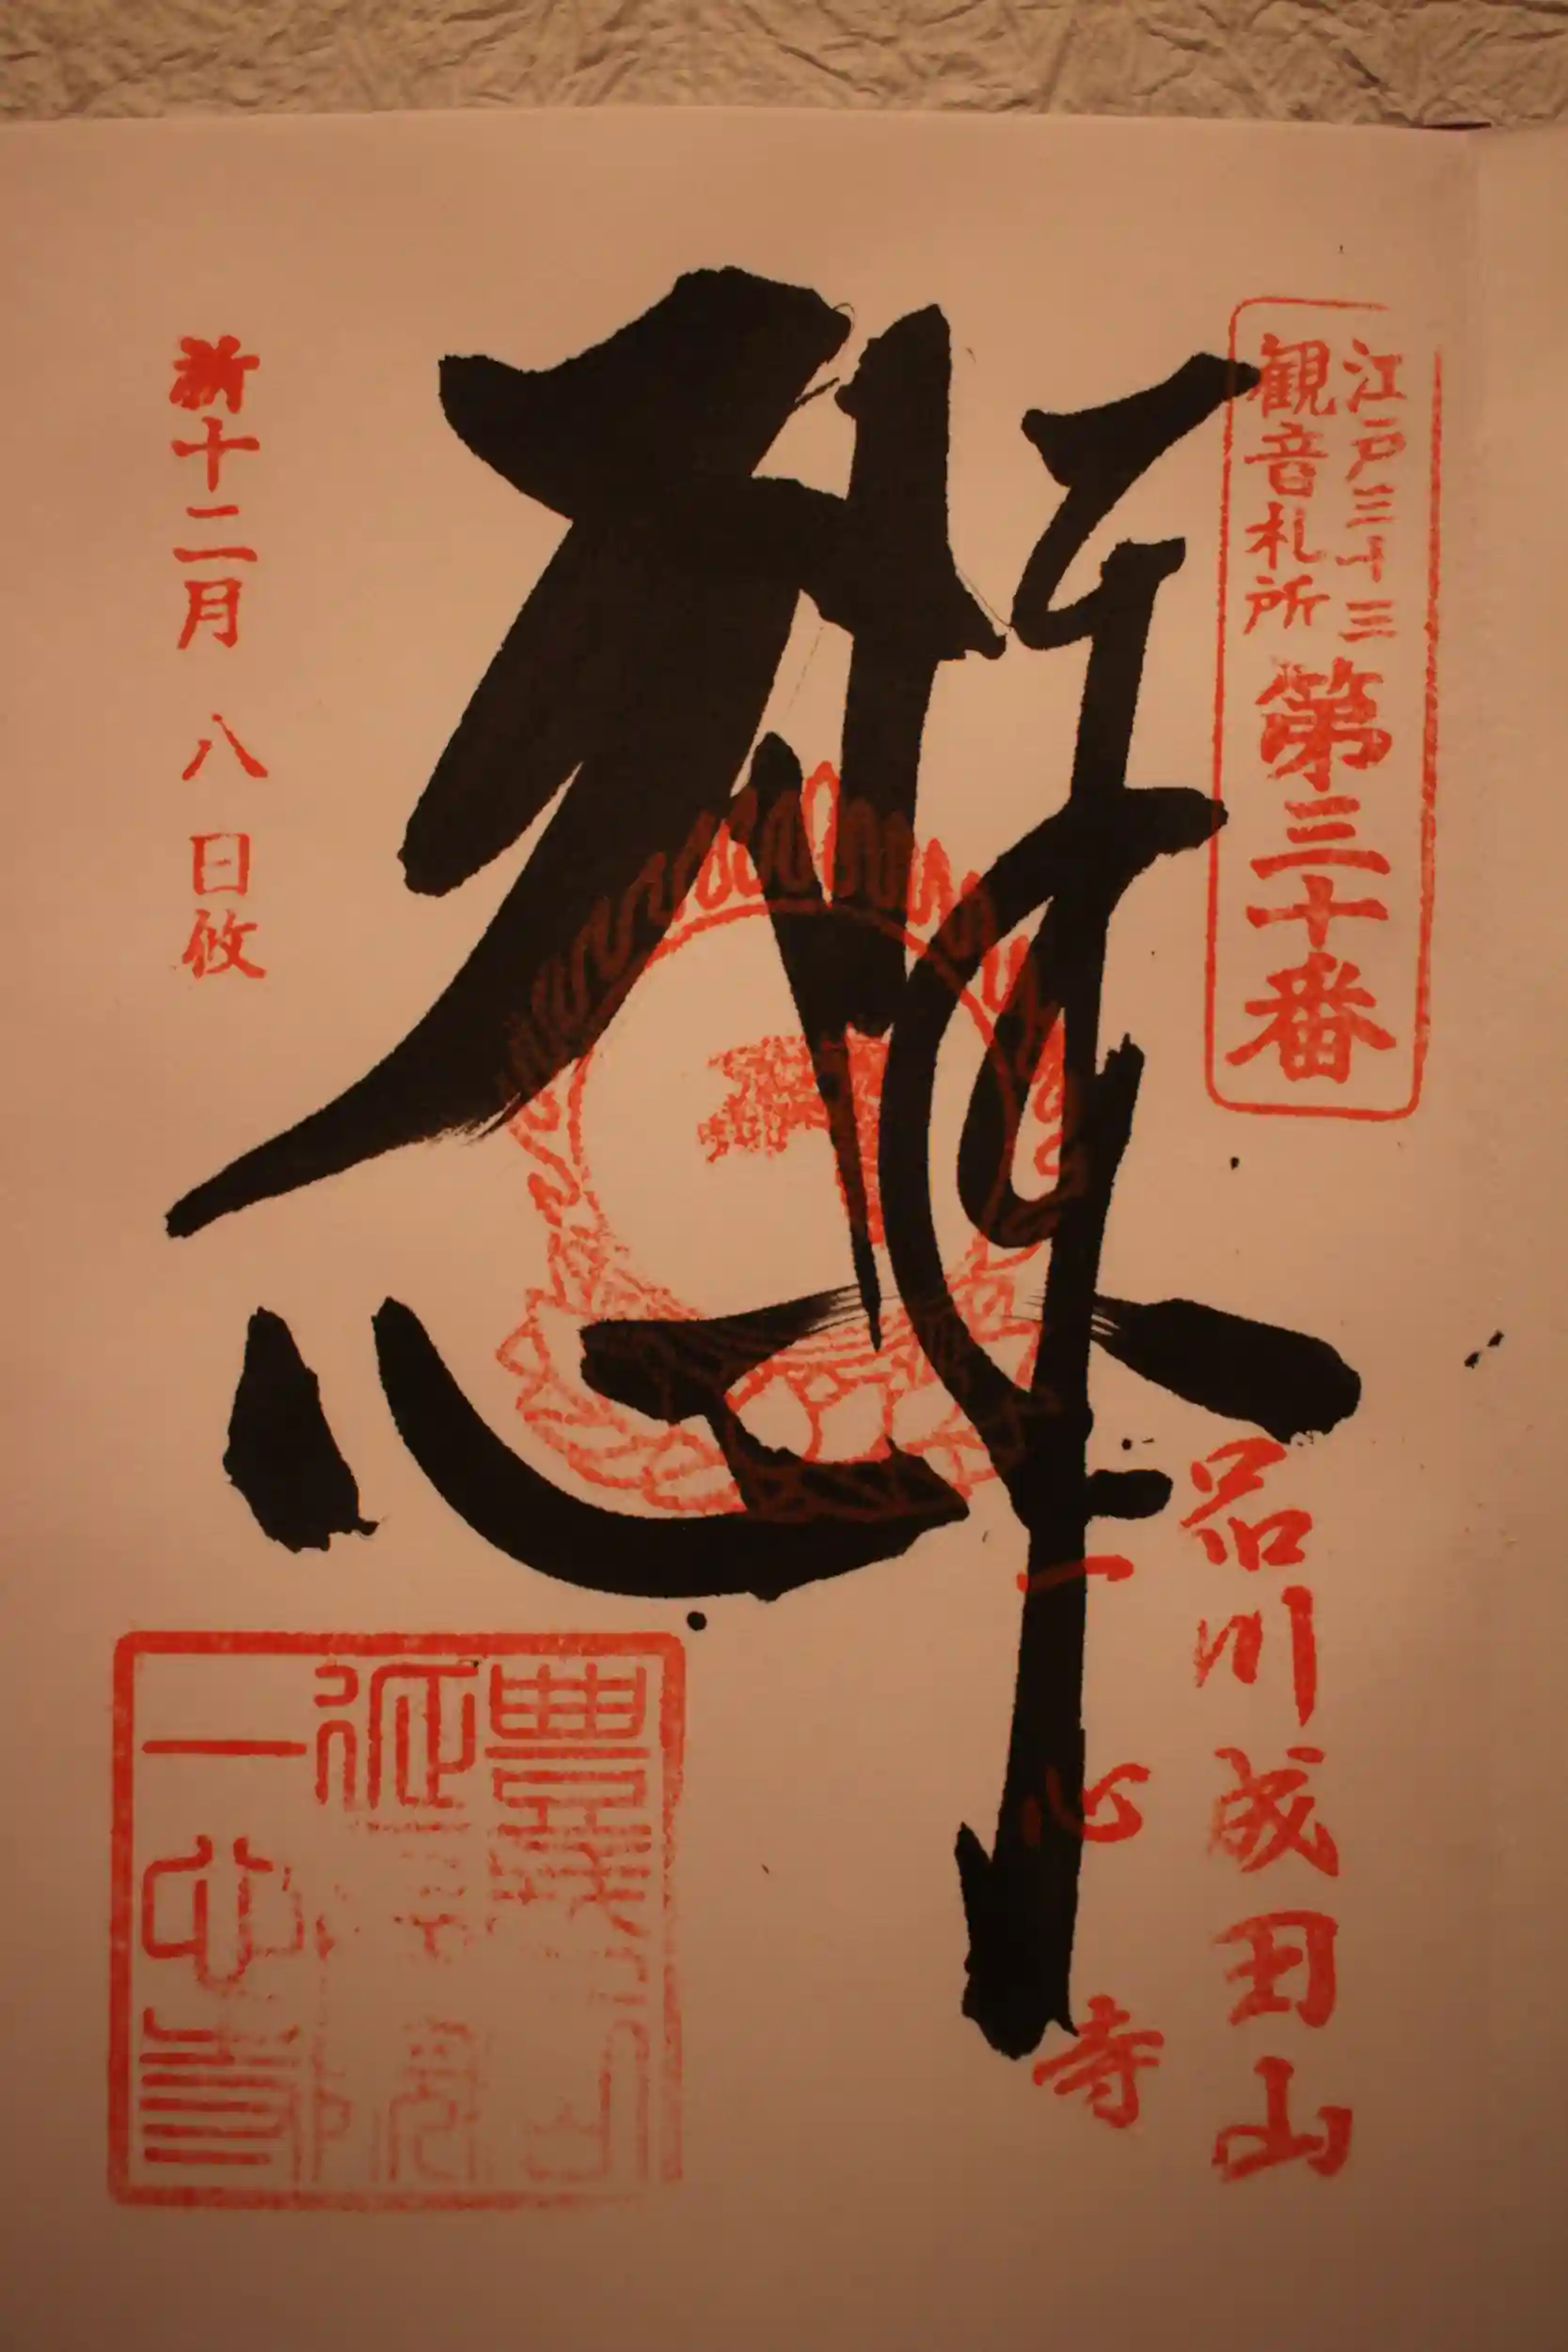 江戸三十三
観音札所
第三十番
品川成田山
一心寺
新十二月八日攸
豊盛山
延命院
一心寺